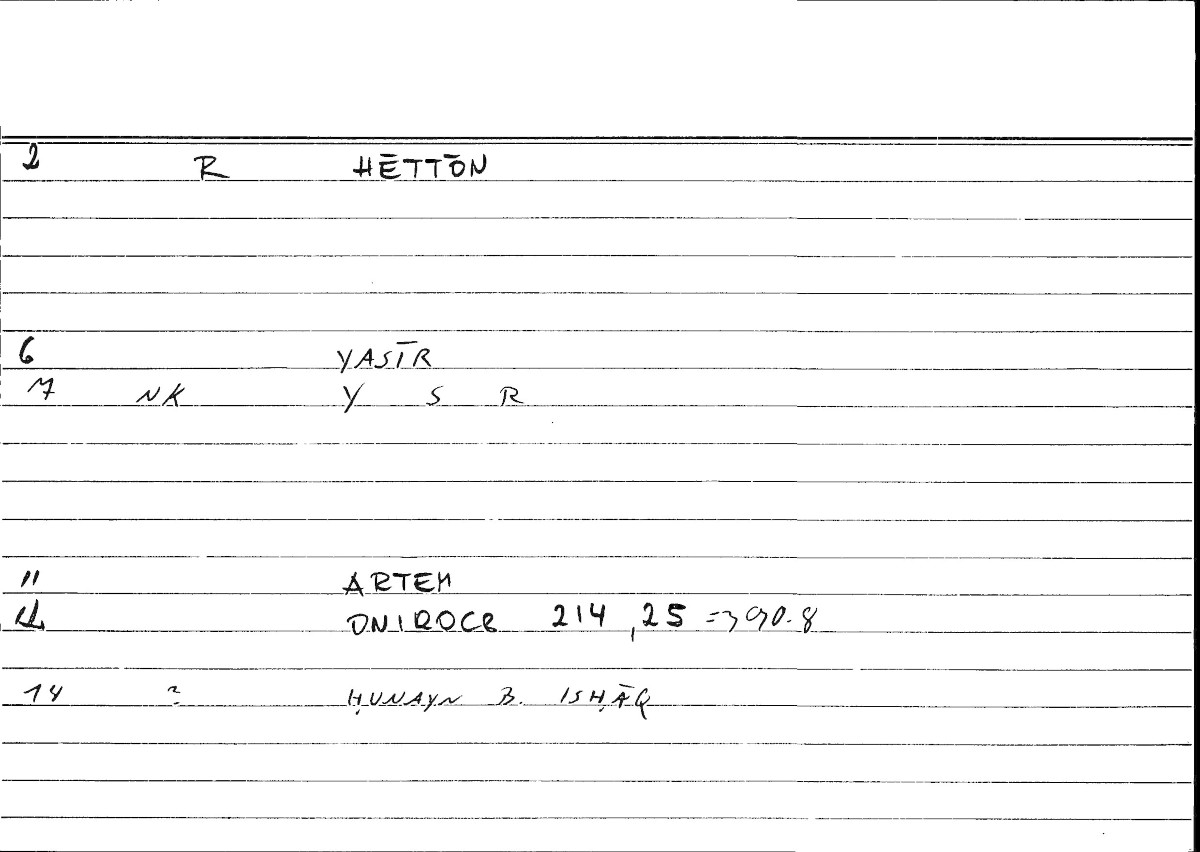 2 R HĒTTŌN
6 YASĪR
7 NK Y S R
11 ARTEM
12 ONIROCR 214,25 => 90.8
14 ? ḤUNAYN B. ISḤĀQ